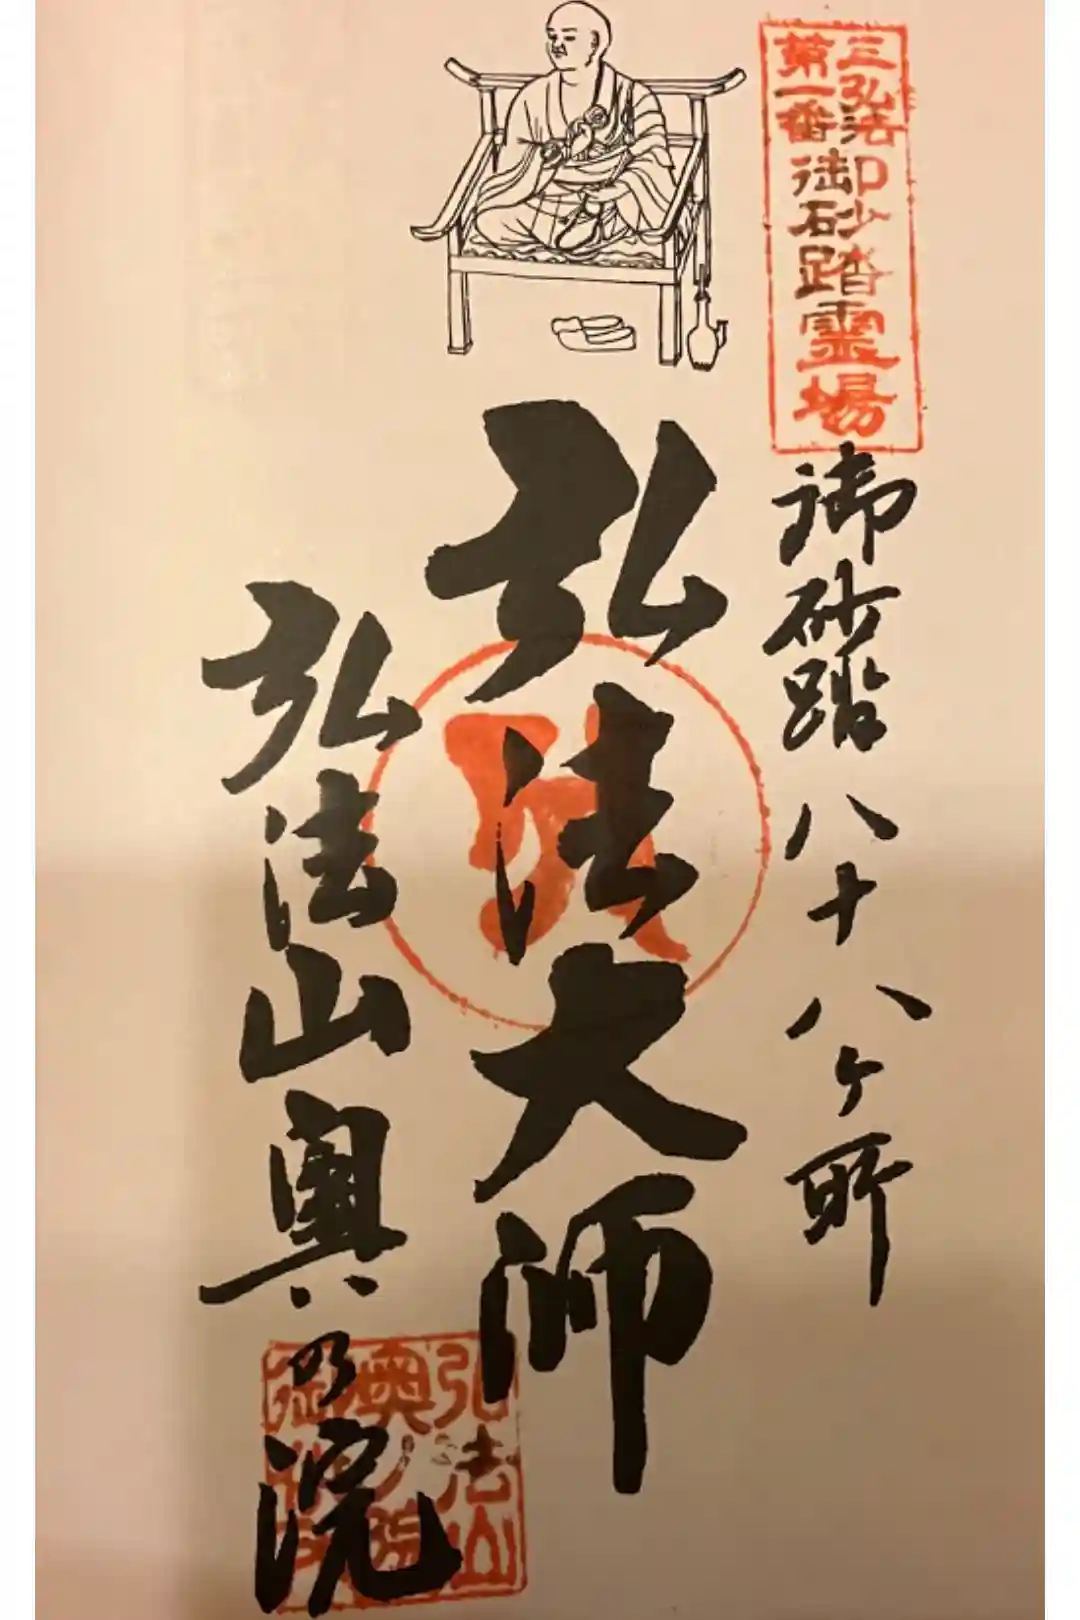 三弘法
第一番
御砂踏霊場
御砂踏八十八ヶ所
弘法大師
弘法山奥の院
弘法山
奥ノ院